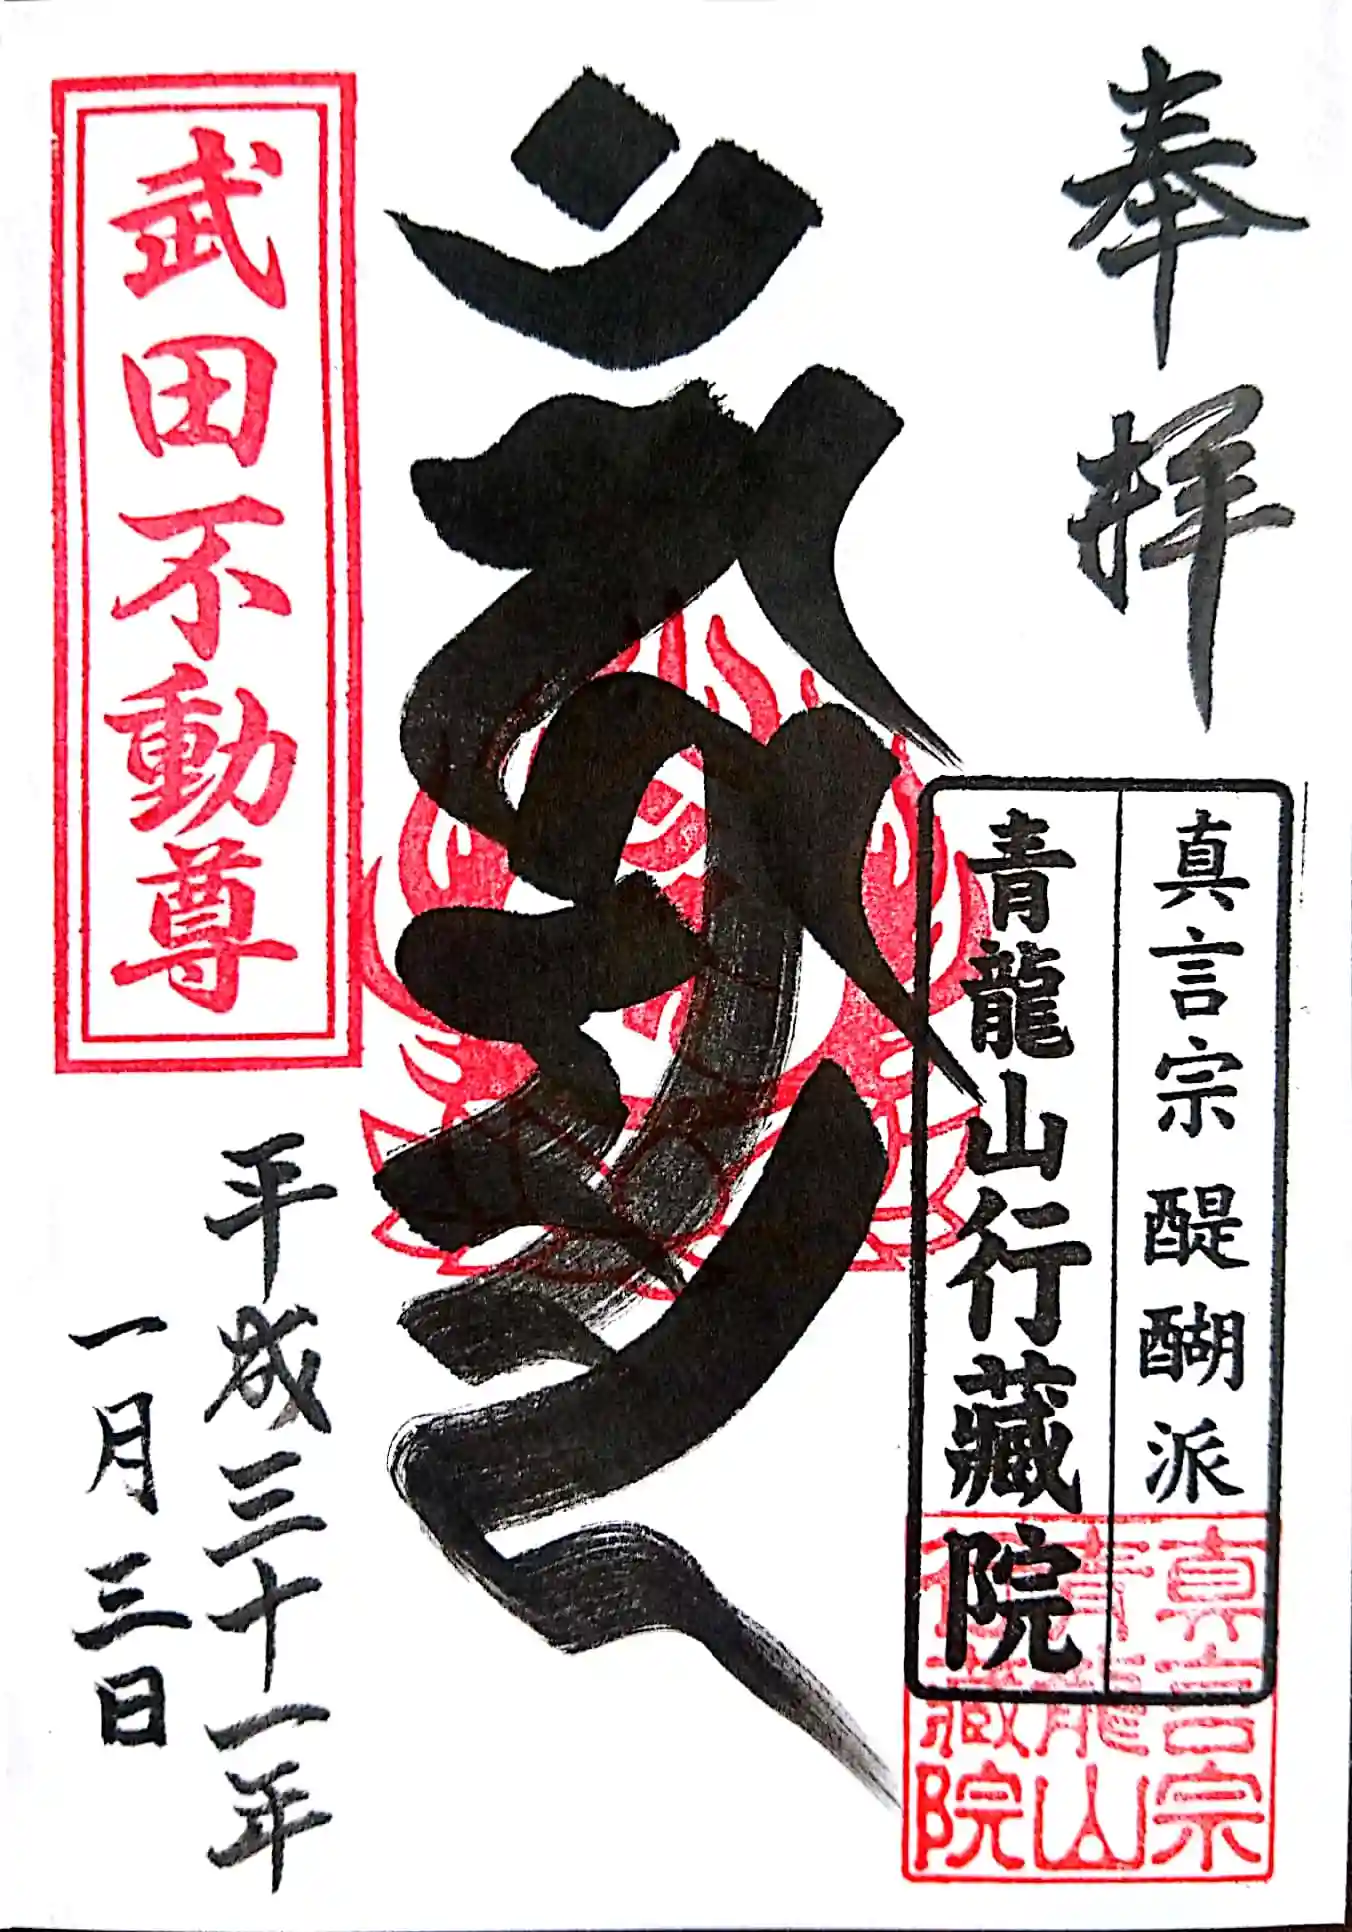 奉拝
真言宗醍醐派
青龍山行蔵院
真言宗
青龍山
行蔵院
武田不動尊
平成三十一年
一月三日